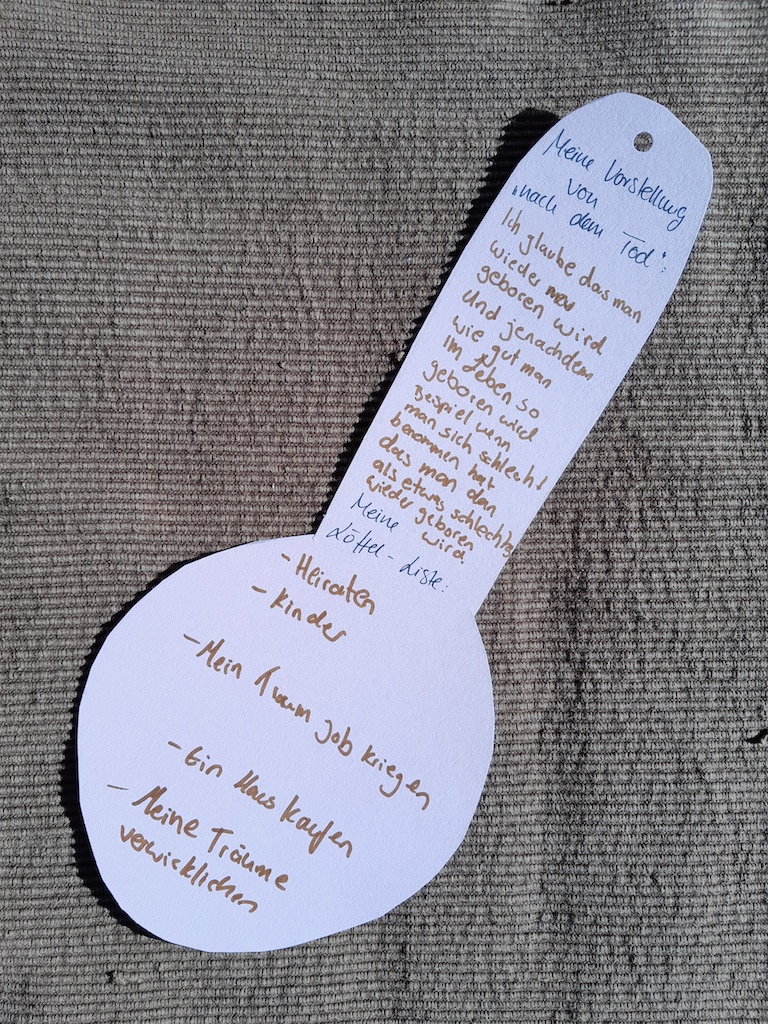 Meine Vorstellung
von
"nach dem Tod":
Ich glaube das man
wieder neu
geboren wird
Und jenachdem
wie gut man
im Leben so
geboren wird
Beispiel wenn
man sich schlecht
benommen hat
das man dan
als etwas schlechtes
wieder geboren
wird.
Meine
Löffel-Liste:
- Heiraten
- Kinder
- Mein Traum job kriegen
- Ein Haus kaufen
- Meine Träume
verwicklichen